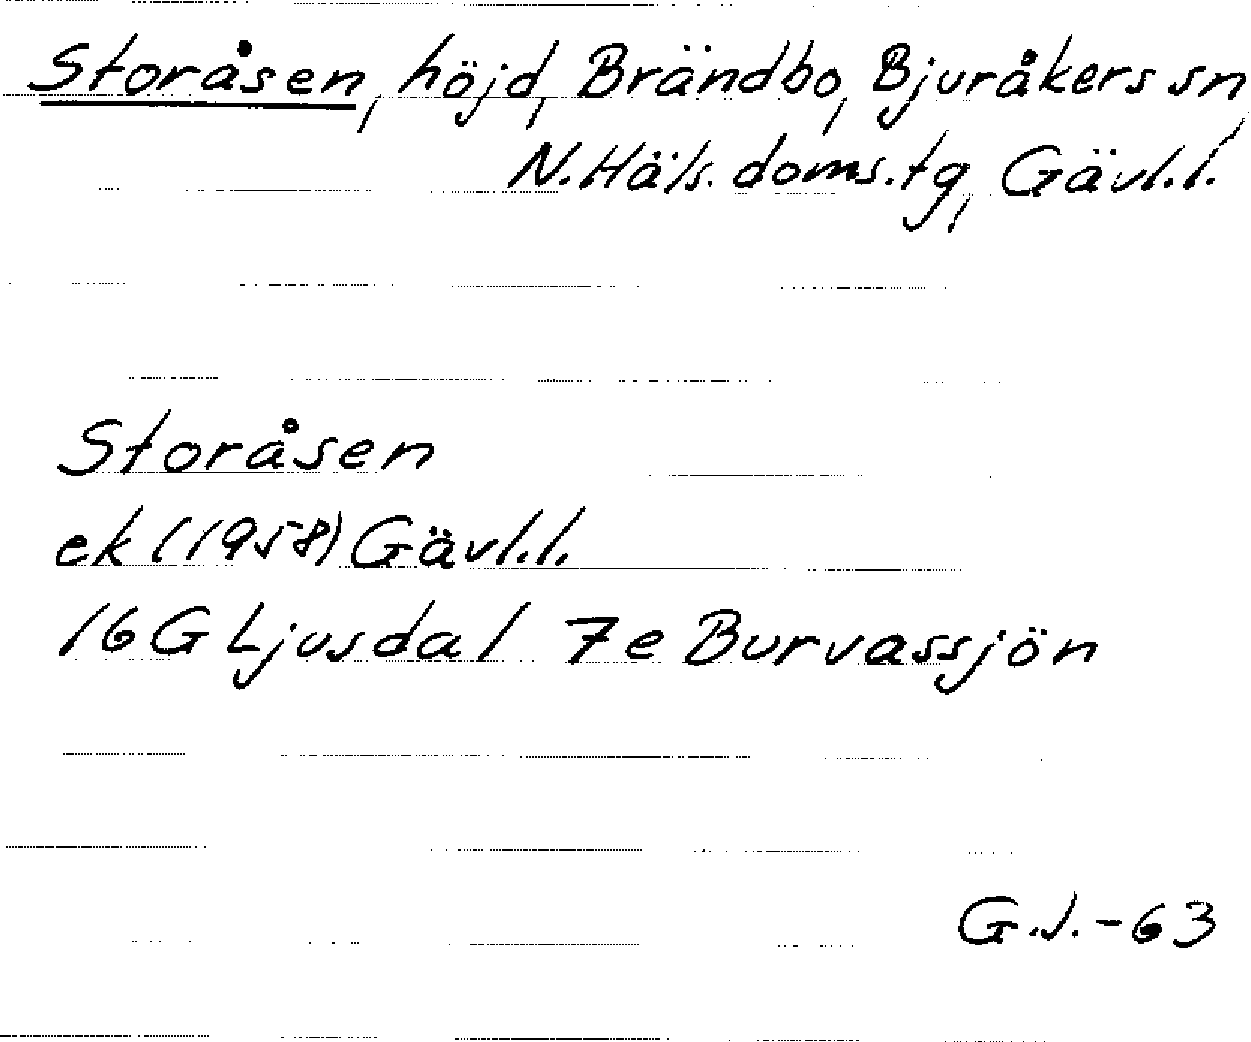 Storåsen, höjd, Brändbo, Bjuråkers sn,
N. Häls. doms. tg, Gävl. l.
Storåsen
ek (1958) Gävl. l.
16 G Ljusdal 7e Burvassjön
G.J. -63